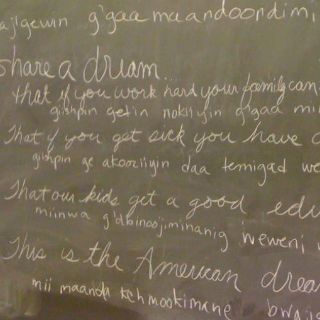 g'gaa maandoordimi
share a dream...
that if you work hard your family can
gishpin get'in nokiiyin g'gaa
That if you get sick you have
gishpin ge akooriiyin daa temigad we
That our kids get a good edu
miinwa g'dbinoojiminanig weweni
This is the American drea
mii maanda kchmookimane bwaj